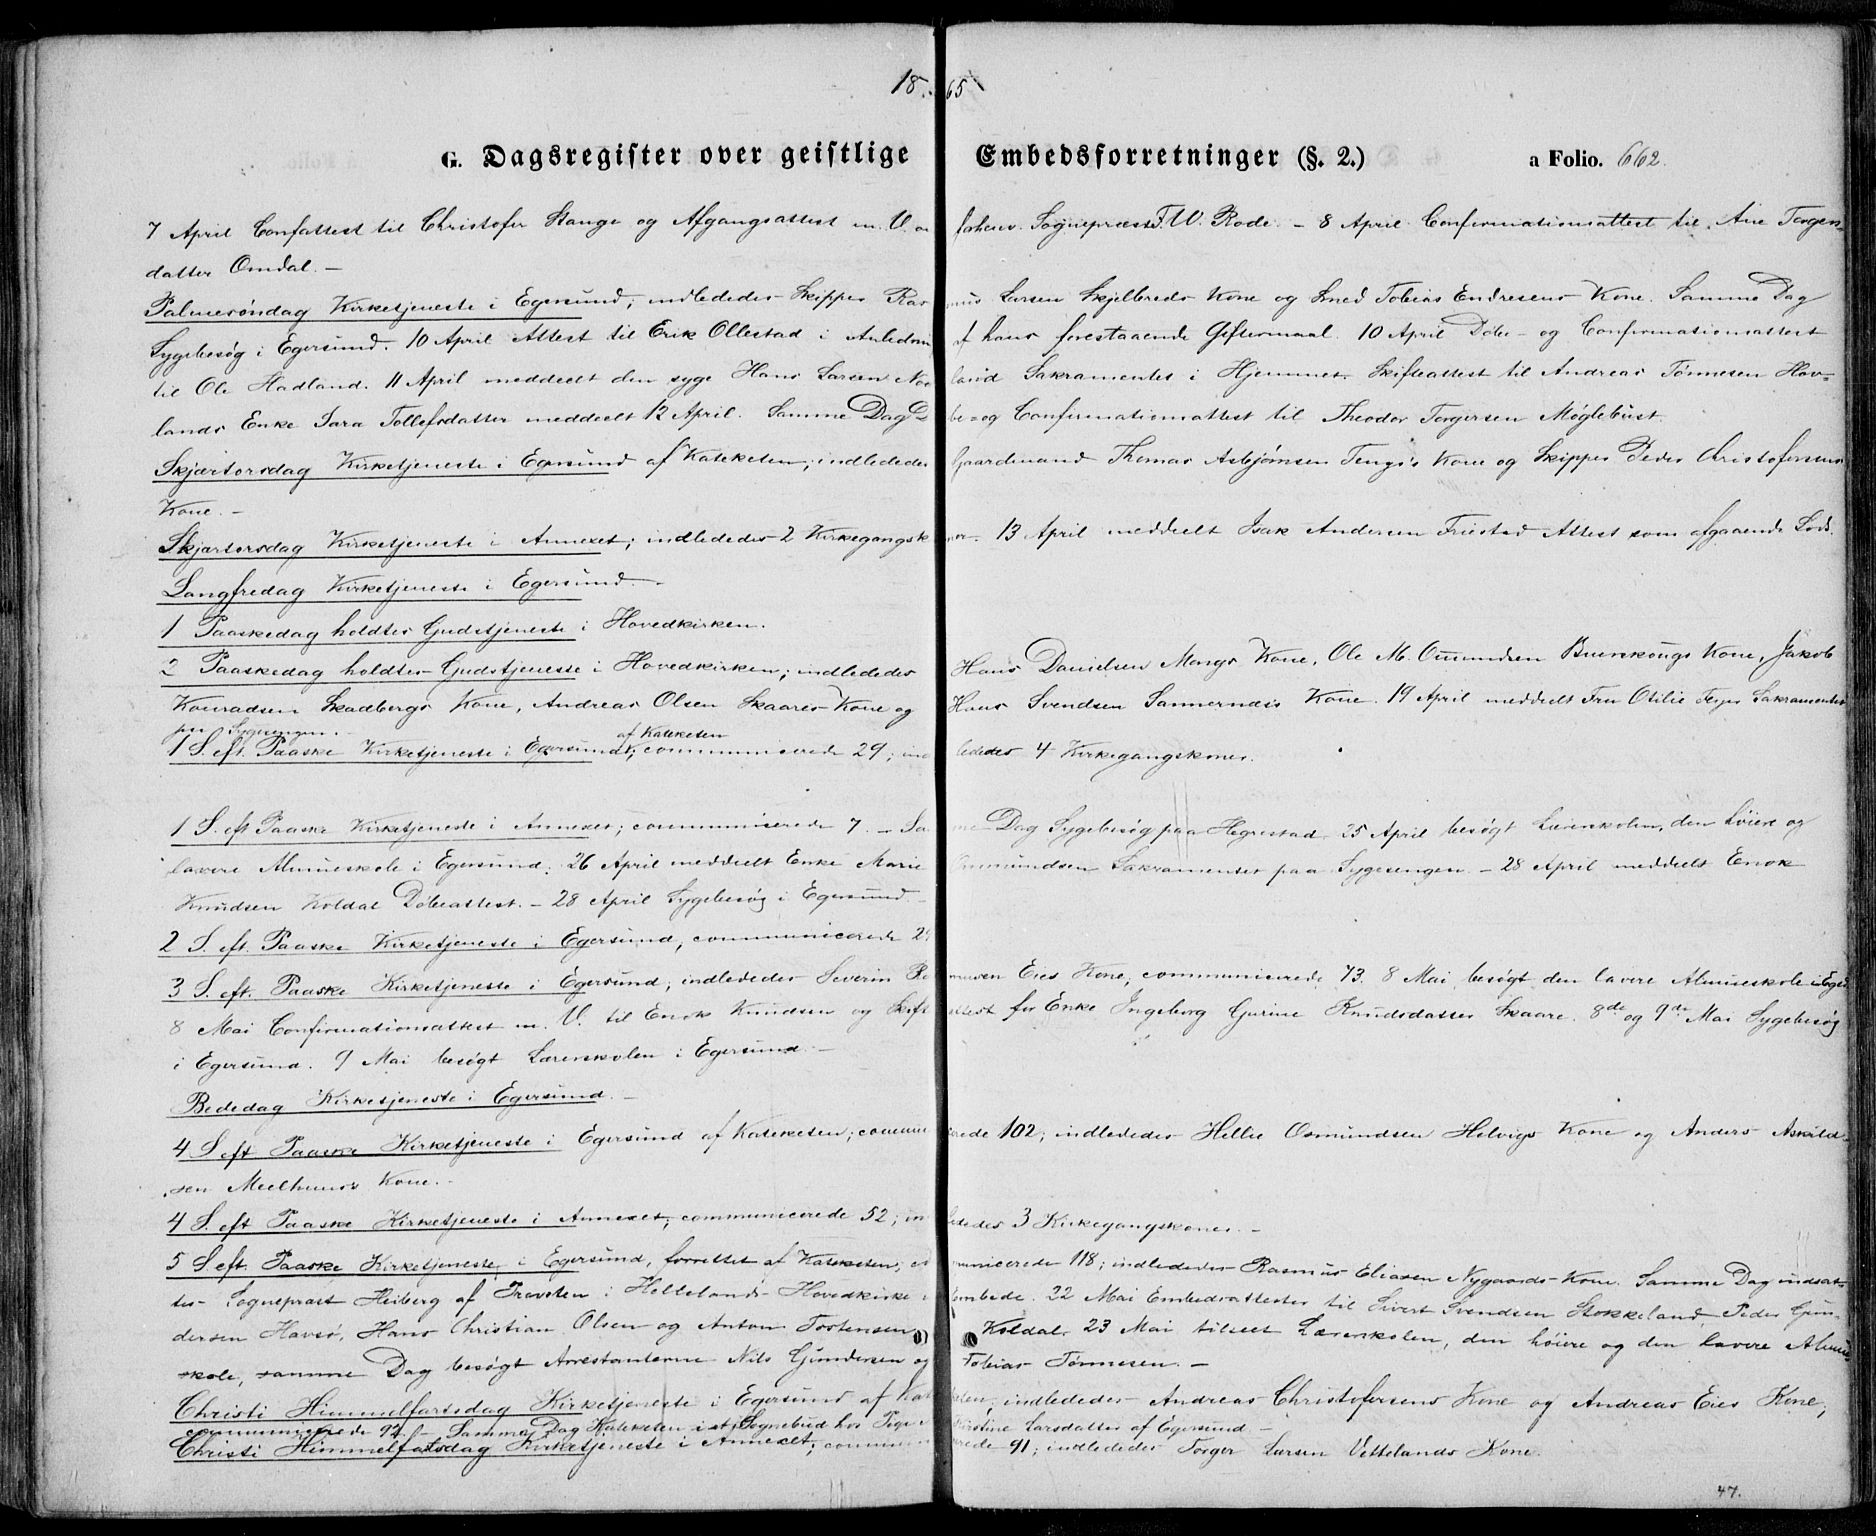 1865
G. Dagsregister over geistlige Embedsforretninger (§. 2.) a Folio. 662.
7 April Confattest til Christofer Stange og Afgangsattest m. V. Sognepræst F. W. Rode. – 8 April Confirmationsattest til Ane Torgers-
datter Omdal. –
Palmesöndag Kirketjeneste i Egersund; indlededes Skipper Rasmus Larsen Skjelbreds Kone og Smed Tobias Endresens Kone. Samme Dag
Sygebesøg i Egersund. 10 April Attest til Erik Ollestad i Anledning af hans forestaaende Giftermaal. 10 April Döbe- og Confirmationsattest
til Ole Hadland. 11 April meddeelt den syge Hans Larsen Sakramentet i Hjemmet. Skifteattest til Andreas Tönnesen Hov-
lands Enke Sara Tollefsdatter meddeelt 12 April. Samme Dag Döbe- og Confirmationsattest til Theodor Torgersen Møglebust.
Skjærtorsdag Kirketjeneste i Egersund af Kateketen; indlededes Gaardmand Thomas Asbjörnsen Tengs's Kone og Skipper Peder Christofersens
Kone. –
Skjærtorsdag Kirketjeneste i Annexet; indlededes 2 Kirkegangskoner. 13 April meddeelt Isak Andersen Friestad Attest som afgaaende Lods.
Langfredag Kirketjeneste i Egersund. –
1 Paaskedag holdtes Gudstjeneste i Hovedkirken.
2 Paaskedag holdtes Gudstjeneste i Hovedkirken; indlededes Hans Danielsen Mongs Kone, Ole M. Omundsen Kone, Jakob
Konradsen Skadbergs Kone, Andreas Olsen Skaares Kone og Hans Svendsen Sannernæs Kone. 19 April meddelt Fru Otilie Feyer Sakramentet
paa Sygesengen. –
1 S. eft. Paaske Kirketjeneste i Egersund af Kateketen; communicerede 29; indlededes 4 Kirkegangskoner.
1 S. eft Paaske Kirketjeneste i Annexet; communicerede 7. – Samme Dag Sygebesøg paa Hegrestad. 25 April besøgt Lærerskolen, den höiere og
lavere Almueskole i Egersund. 26 April meddelt Enke Marie Ommundsen Sakramentet paa Sygesengen. – 28 April meddeelt Enok
Knudsen Koldal Döbeattest. – 28 April Sygebesøg i Egersund. –
2 S. eft. Paaske Kirketjeneste i Egersund, communicerede
3 S. eft. Paaske Kirketjeneste i Egersund; indlededes Severin Eies Kone; communicerede 73. 8 Mai besøgt den lavere Almueskole i Eges.
8 Mai Confirmationsattest m. V. til Enok Knudsen og Skifteattest for Enke Ingeborg Gurine Knudsdatter Skaare. 8de og 9de Mai Sygebesøg
i Egersund. 9 Mai besøgt Lærerskolen i Egersund. –
Bededag Kirketjeneste i Egersund. –
4 S. eft Paaske Kirketjeneste i Egersund af Kateketen; communicerede 102; indlededes Hellie Osmundsen Helvigs Kone og Anders Askild-
sen Meelhuus's Kone. –
4 S. eft Paaske Kirketjeneste i Annexet; communicerede 52; indlededes 3 Kirkegangskoner. –
5 S. eft. Paaske Kirketjeneste i Egersund, forrettet af Kateketen; communicerede 118; indlededes Rasmus Eliasen Nygaards Kone. Samme Dag indsat-
tes Sognepræst Heiberg af Provsten i Hellelands Hovedkirke i Embede. 22 Mai Embedsattester til Sivert Svendsen Stokkeland, Peder Gun-
dersen Havsö, Hans Christian Olsen og Anton Tostensen Koldal. 23 Mai tilseet Lærerskolen, den höiere og den lavere Almue-
skole, samme Dag besøgt Arrestanterne Nils Gundersen og Tobias Tönnesen. –
Christi Himmelfartsdag Kirketjeneste i Egersund af Kateketen, indlededes Andreas Christofersens Kone og Andreas Eies Kone,
communicerede 92. – Samme Dag Kateketen i Sognebud hos Pige Kristine Larsdatter af Egersund. –
Christi Himmelfartsdag Kirketjeneste i Annexet; communicerede 91; indlededes Torger Larsen Vettelands Kone.
47.